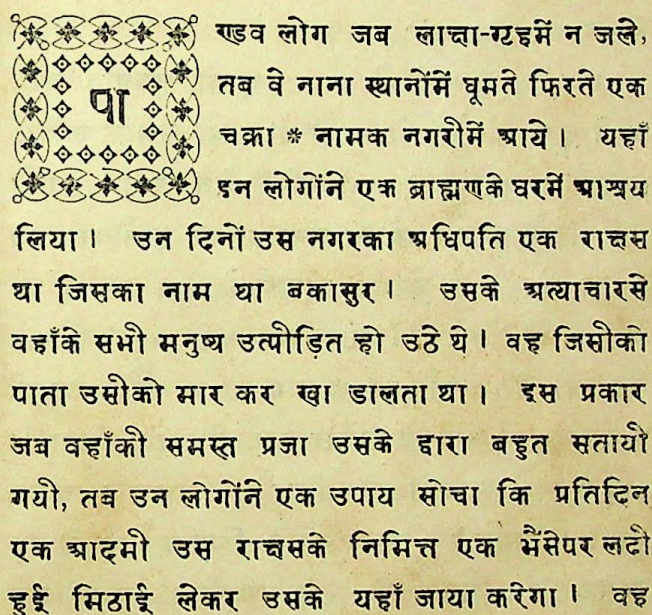 पाण्डव लोग जब लाक्षा-गृहमें न जले,
तब वे नाना स्थानोंमें घूमते फिरते एक
चक्रा * नामक नगरीमें आये। यहाँ
इन लोगोंने एक ब्राह्मणके घरमें आश्रय
लिया। उन दिनों उस नगरका अधिपति एक राक्षस
था जिसका नाम था बकासुर। उसके अत्याचारसे
वहाँके सभी मनुष्य उत्पीड़ित हो उठे थे। वह जिसीको
पाता उसीको मार कर खा डालता था। इस प्रकार
जब वहाँकी समस्त प्रजा उसके द्वारा बहुत सतायी
गयी, तब उन लोगोंने एक उपाय सोचा कि प्रतिदिन
एक आदमी उस राक्षसके निमित्त एक भैंसेपर लदी
हुई मिठाई लेकर उसके यहाँ जाया करेगा। वह